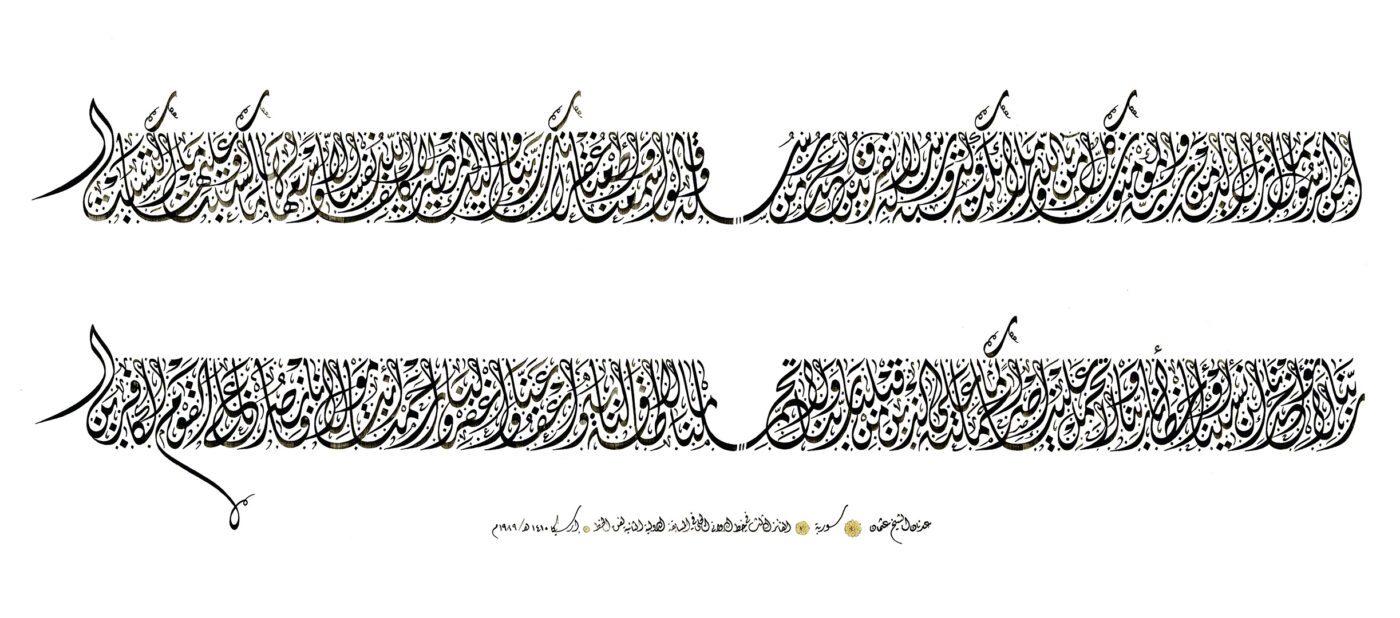 آمن الرسول بما أنزل إليه من ربه والمؤمنون كل آمن بالله وملائكته وكتبه ورسله لا نفرق بين أحد من رسله وقالوا سمعنا وأطعنا غفرانك ربنا وإليك المصير لا يكلف الله نفسا إلا وسعها لها ما كسبت وعليها ما اكتسبت
ربنا لا تؤاخذنا إن نسينا أو أخطأنا ربنا ولا تحمل علينا إصرا كما حملته على الذين من قبلنا ربنا ولا تحملنا ما لا طاقة لنا به واعف عنا واغفر لنا وارحمنا أنت مولانا فانصرنا على القوم الكافرين
عدنان الشيخ عثمان سورية الفائز الثالث في خط الديواني الجلي في المسابقة الدولية الثانية لفن الخط إرسيكا ١٤١٠ هـ/١٩٨٩م